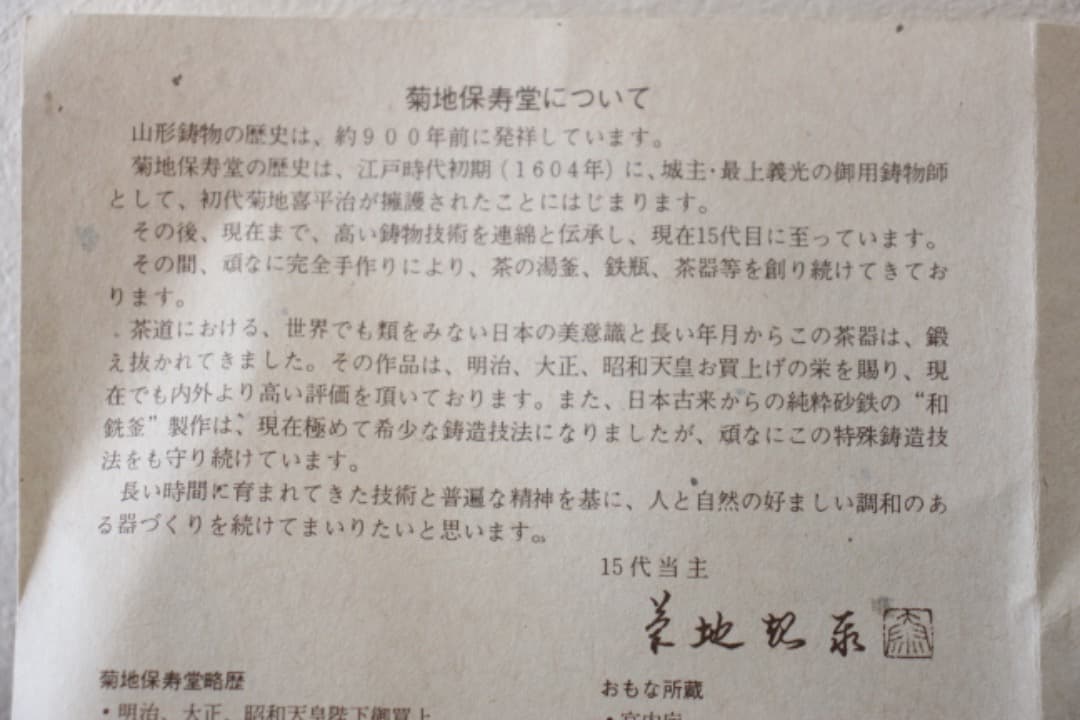 菊地保寿堂について
山形鋳物の歴史は、約９００年前に発祥しています。
菊地保寿堂の歴史は、江戸時代初期（1604年）に、城主・最上義光の御用鋳物師
として、初代菊地喜平治が擁護されたことにはじまります。
その後、現在まで、高い鋳物技術を連綿と伝承し、現在15代目に至っています。
その間、頑なに完全手作りにより、茶の湯釜、鉄瓶、茶器等を創り続けてきてお
ります。
茶道における、世界でも類をみない日本の美意識と長い年月からこの茶器は、鍛
え抜かれてきました。その作品は、明治、大正、昭和天皇お買上げの栄を賜り、現
在でも内外より高い評価を頂いております。また、日本古来からの純粋砂鉄の“和
銑釜”製作は、現在極めて希少な鋳造技法になりましたが、頑なにこの特殊鋳造技
法をも守り続けています。
長い時間に育まれてきた技術と普遍な精神を基に、人と自然の好ましい調和のあ
る器づくりを続けてまいりたいと思います。
15代当主
菊地
菊地保寿堂略歴
・明治、大正、昭和天皇陛下御買上
おもな所蔵
・宮内庁